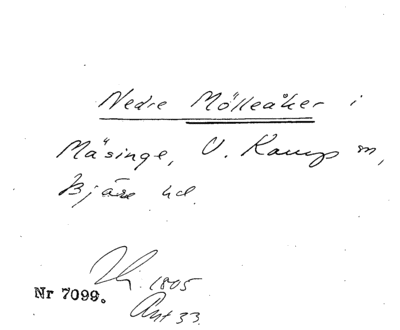 Nedre Mölleåker i
Mäsinge, V. Karup sn,
Bjäre hd.
1805
Nr 7099.
Akt 33